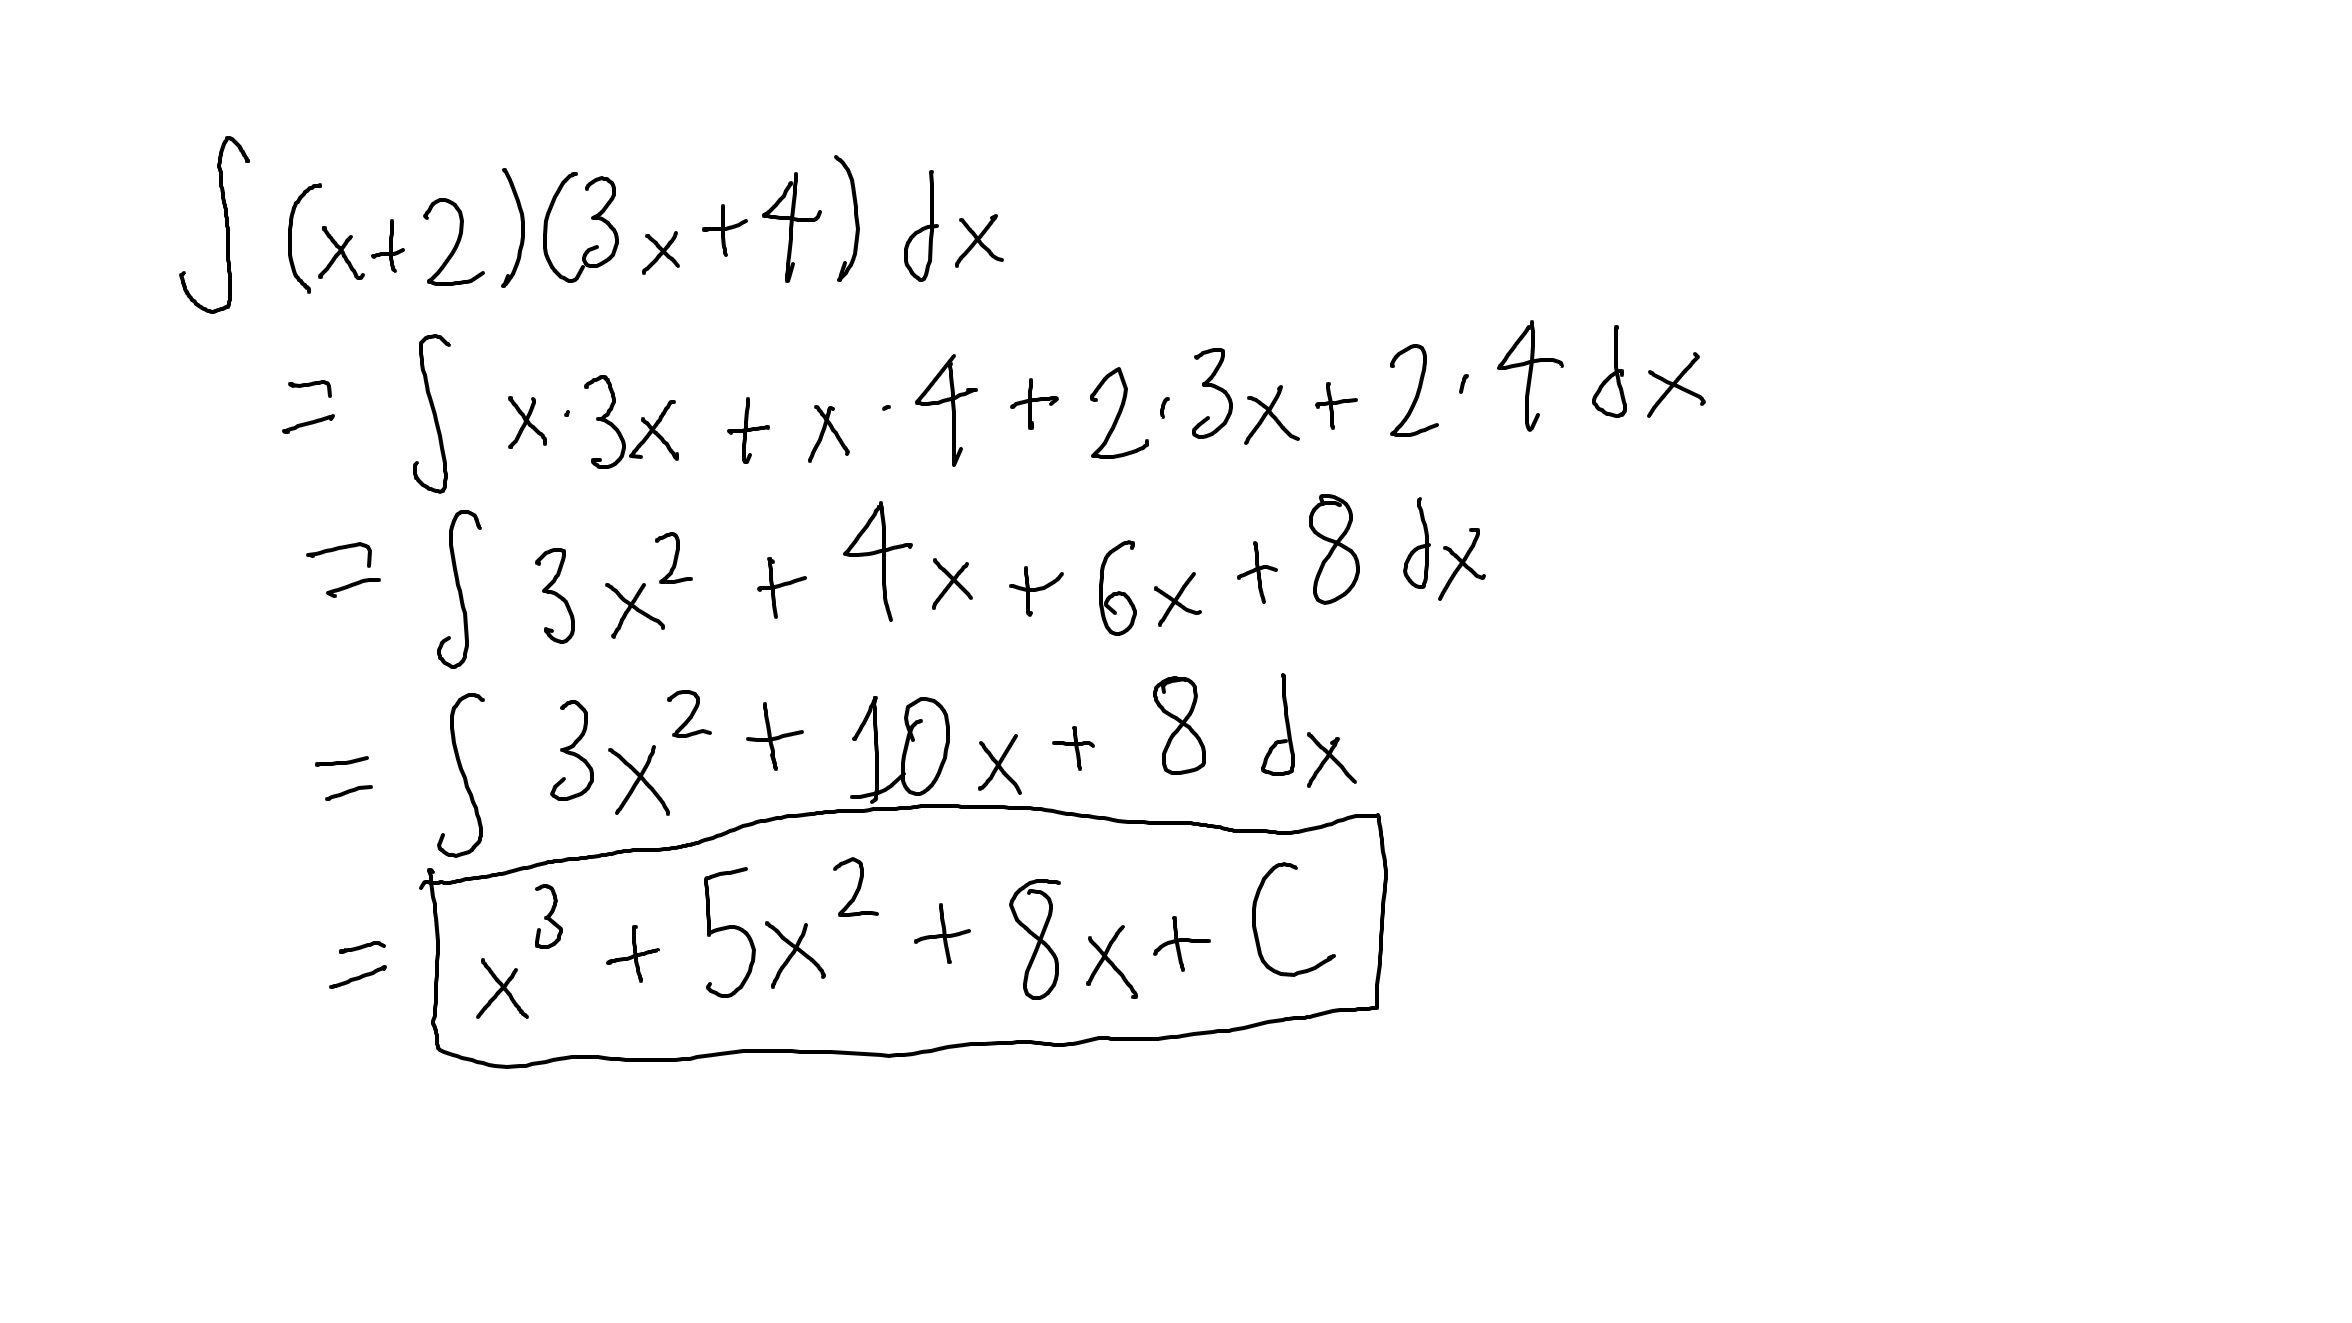 ∫ (x+2)(3x+4) dx
= ∫ x·3x + x·4 + 2·3x + 2·4 dx
= ∫ 3x² + 4x + 6x + 8 dx
= ∫ 3x² + 10x + 8 dx
= x³ + 5x² + 8x + C